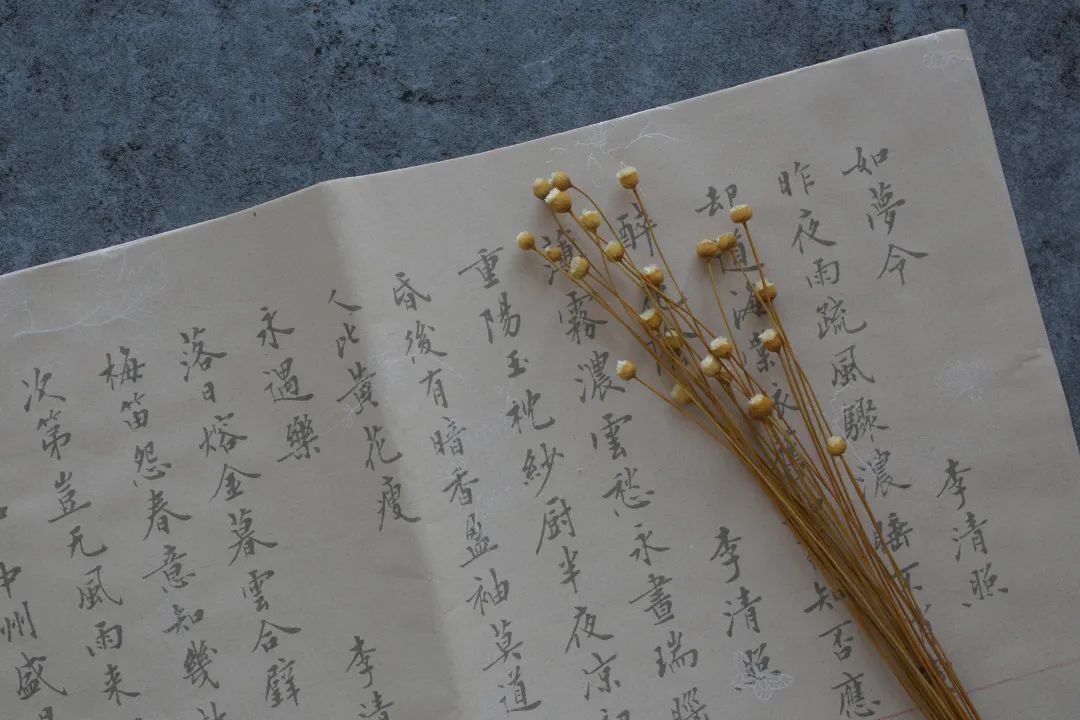 如夢令 李清照
昨夜雨疏風驟濃睡不
却道海棠依舊知否應
醉花陰 李清照
薄霧濃雲愁永晝瑞腦
重陽玉枕紗厨半夜凉初
昏後有暗香盈袖莫道
人比黃花瘦
永遇樂 李清
落日熔金暮雲合璧
梅笛怨春意知幾
次第豈无風雨来
中州盛日